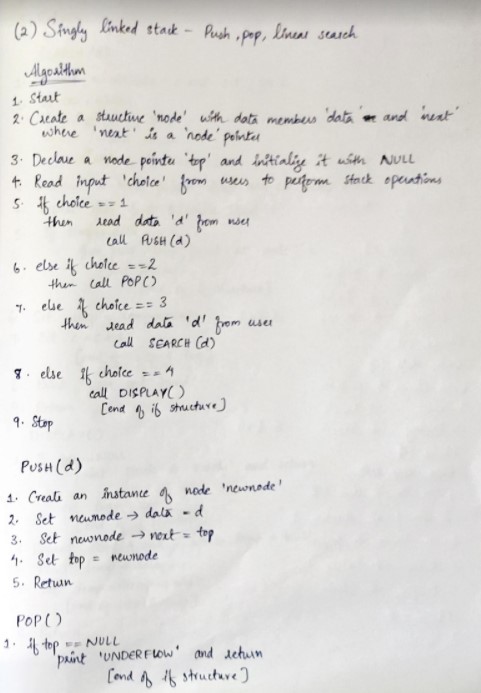 (2) Singly linked stack - Push, pop, linear search
Algorithm
1. Start
2. Create a structure 'node' with data members 'data' and 'next'
where 'next' is a 'node' pointer
3. Declare a node pointer 'top' and initialize it with NULL
4. Read input 'choice' from users to perform stack operations
5. if choice == 1
then read data 'd' from user
call PUSH(d)
6. else if choice == 2
then call POP()
7. else if choice == 3
then read data 'd' from user
call SEARCH(d)
8. else if choice == 4
call DISPLAY()
[end of if structure]
9. Stop
PUSH(d)
1. Create an instance of node 'newnode'
2. Set newnode → data = d
3. Set newnode → next = top
4. Set top = newnode
5. Return
POP()
1. if top == NULL
print 'UNDERFLOW' and return
[end of if structure]